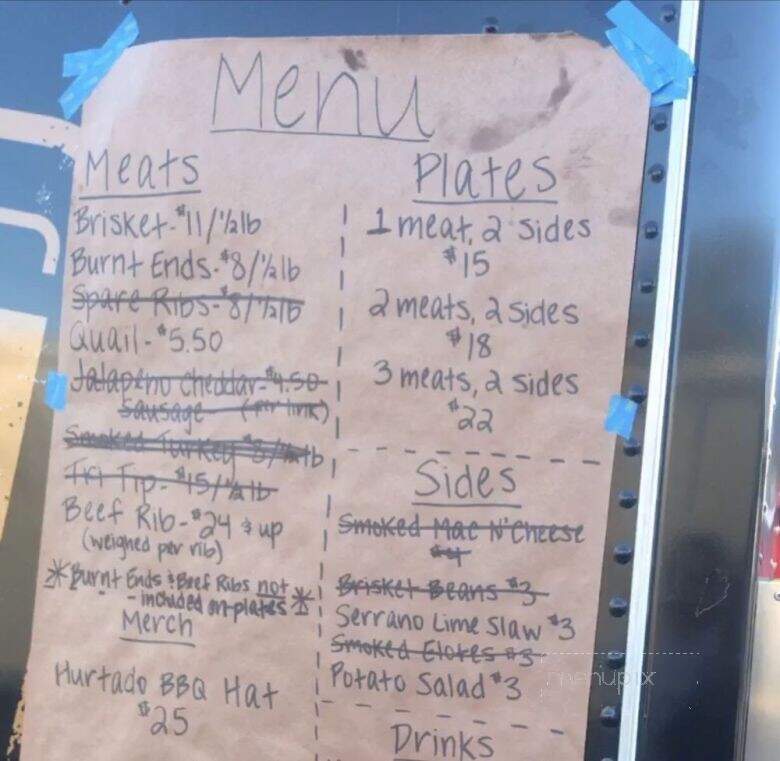 Menu
Meats
Brisket-$11/½lb
Burnt Ends-$8/½lb
Spare Ribs-$8/½lb
Quail-$5.50
Jalapeno Cheddar-$4.50
Sausage (per link)
Smoked Turkey $8/½lb
Tri Tip-$15/½lb
Beef Rib-$24 & up
(weighed per rib)
*Burnt Ends & Beef Ribs not
- included on plates*
Merch
Hurtado BBQ Hat
$25
Plates
1 meat, 2 sides
$15
2 meats, 2 sides
$18
3 meats, 2 sides
$22
Sides
Smoked Mac N' Cheese
$4
Brisket Beans $3
Serrano Lime Slaw $3
Smoked Elotes $3
Potato Salad $3
Drinks
menupix